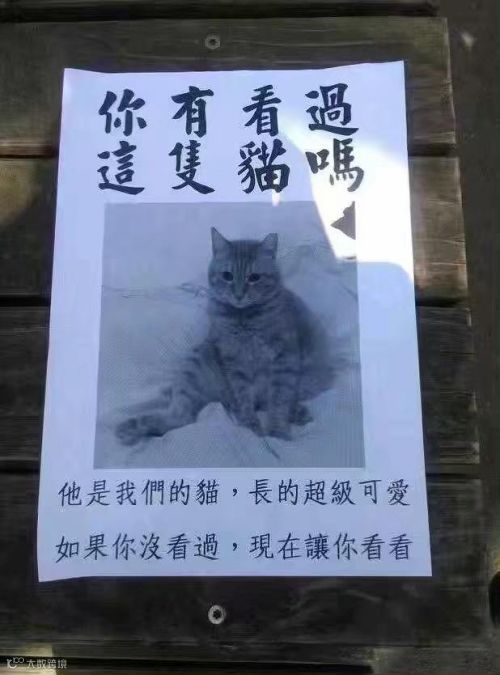 你有看過
這隻貓嗎
他是我們的貓，長的超級可愛
如果你沒看過，現在讓你看看
大數跨境